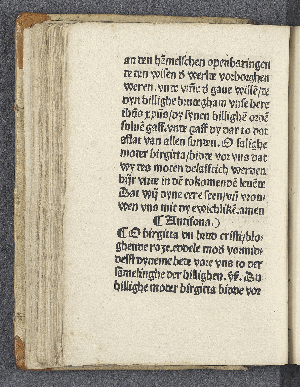 an ten hēmelschen openbaringen
te ten wisen ⁊ werke vorborghen
weren. vnte vm̄e ⁊ gaue wille/te
dyn billighe brutegham vnse here
ihūs xp̄us/dy synen billighē ordē
suluē gaff. vnte gaff dy dar to dat
aflat van allen sunten. O salighe
moter birgitta/bitte vor vns dat
wy tes moten delafftich werden
hijr vnte in dē tokomendē leuēte
Dat wij dyne eere seen/vn̄ vrou-
wen vns mit dy ewichlikē. amen
¶ Antifona.)
¶ O birgitta vn̄ brud cristi/blo-
ghende roze. eddele mod vōrmid-
delst dyneme bete vore vns to der
sāmelinghe der billighen. V̄. Du
billighe moter birgitta bidde vor